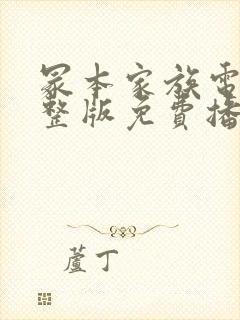 冢本家族電
整版免費播
蘆丁